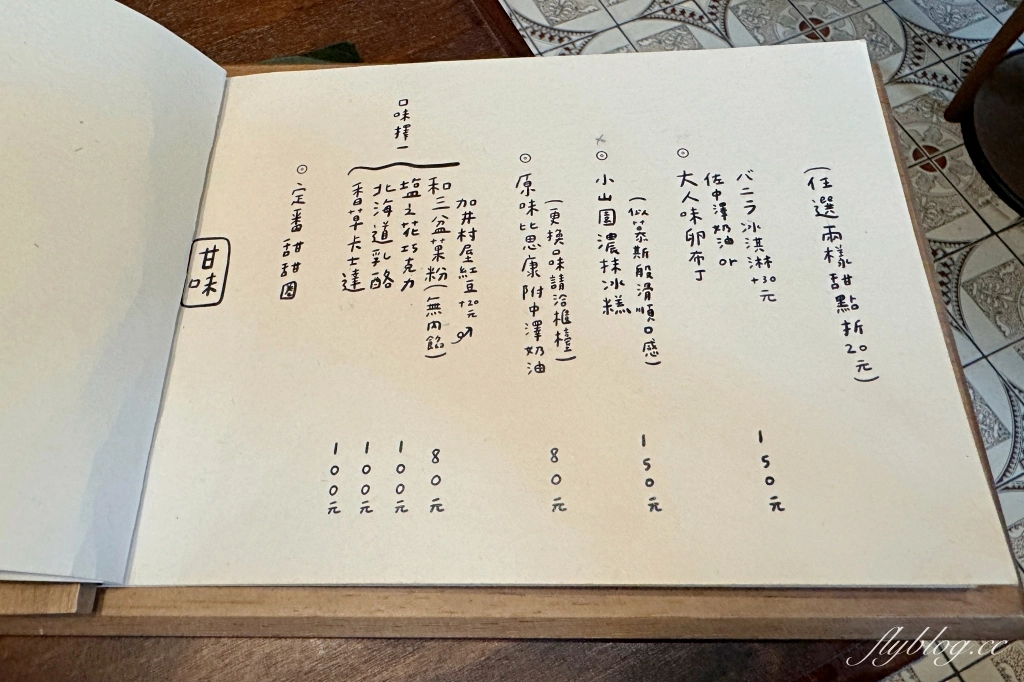 甘味
定番甜甜圈
口味擇一
香草卡士達 100元
北海道乳酪 100元
塩之花巧克力 100元
和三盆菓粉(無內餡) 80元
加井村屋紅豆+20元
原味比思康附中澤奶油
(更換口味請洽櫃檯) 80元
小山園濃抹冰糕
(似慕斯般滑順口感) 150元
大人味卵布丁
佐中澤奶油 or
バニラ冰淇淋+30元 150元
(任選兩樣甜點折20元)
flyblog.cc